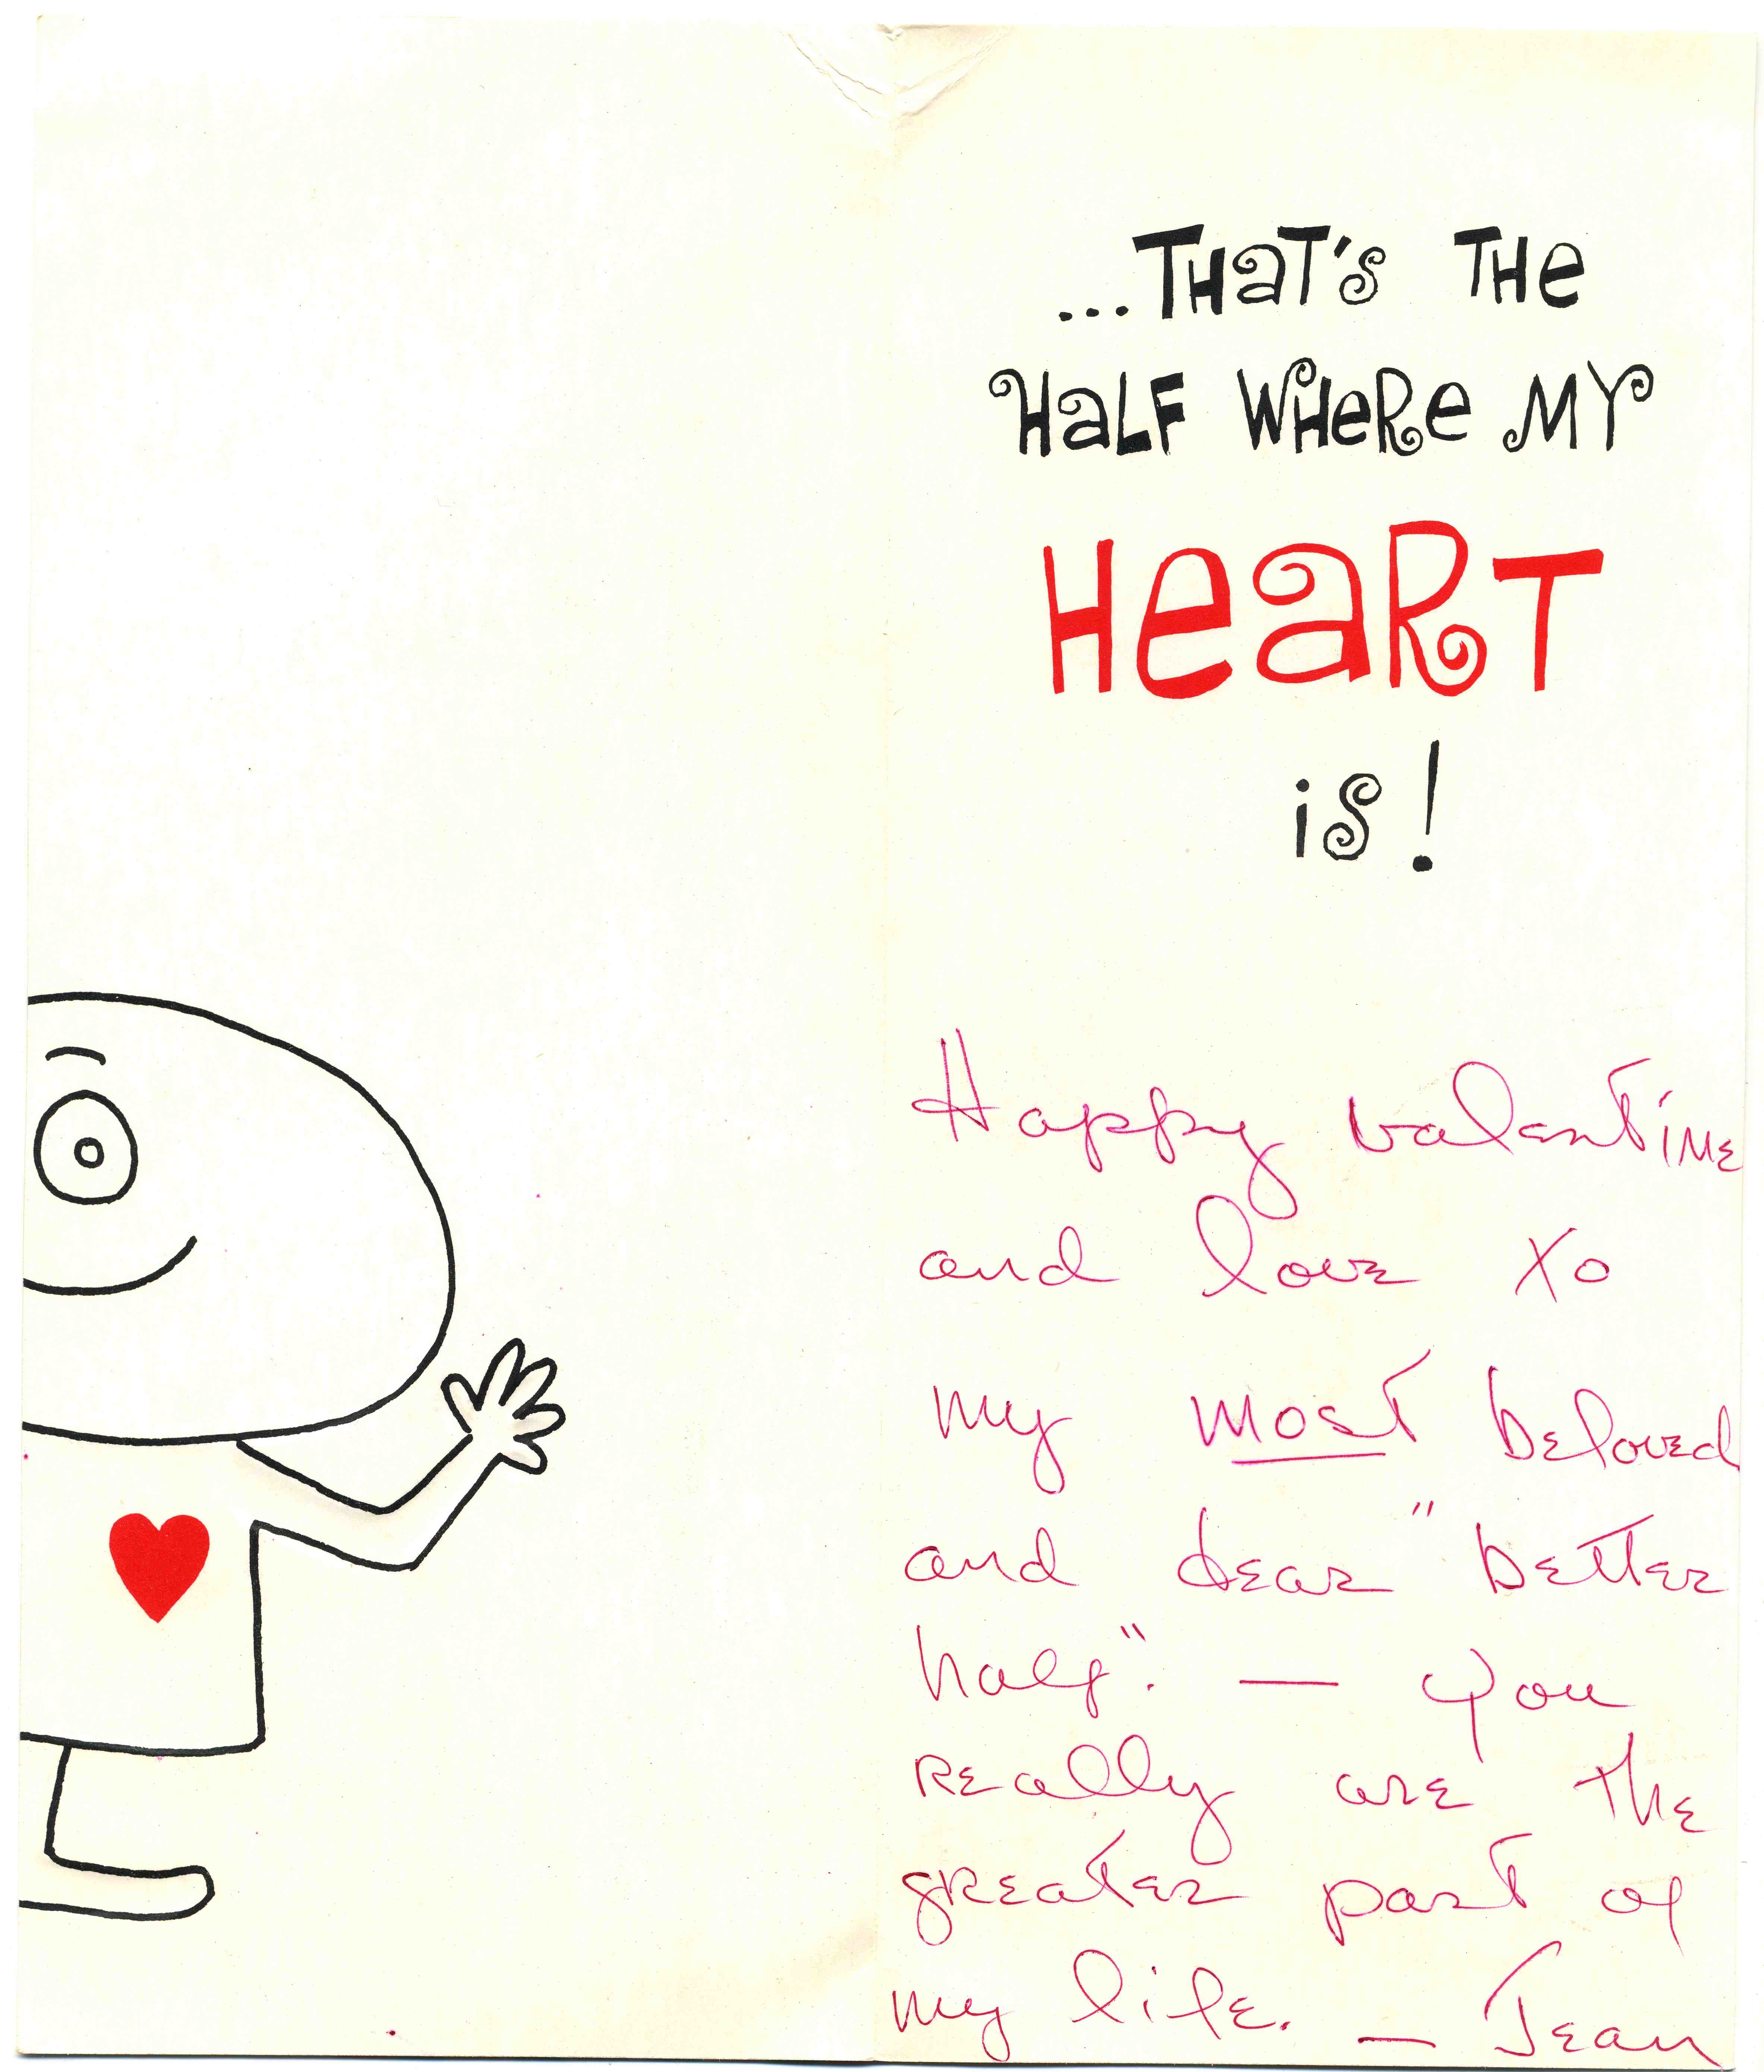 ...THAT'S THE
HALF WHERE MY
HEART
is!
Happy valentine
and love xo
my most beloved
and dear "better
half". — you
really are the
greater part of
my life. — Jean